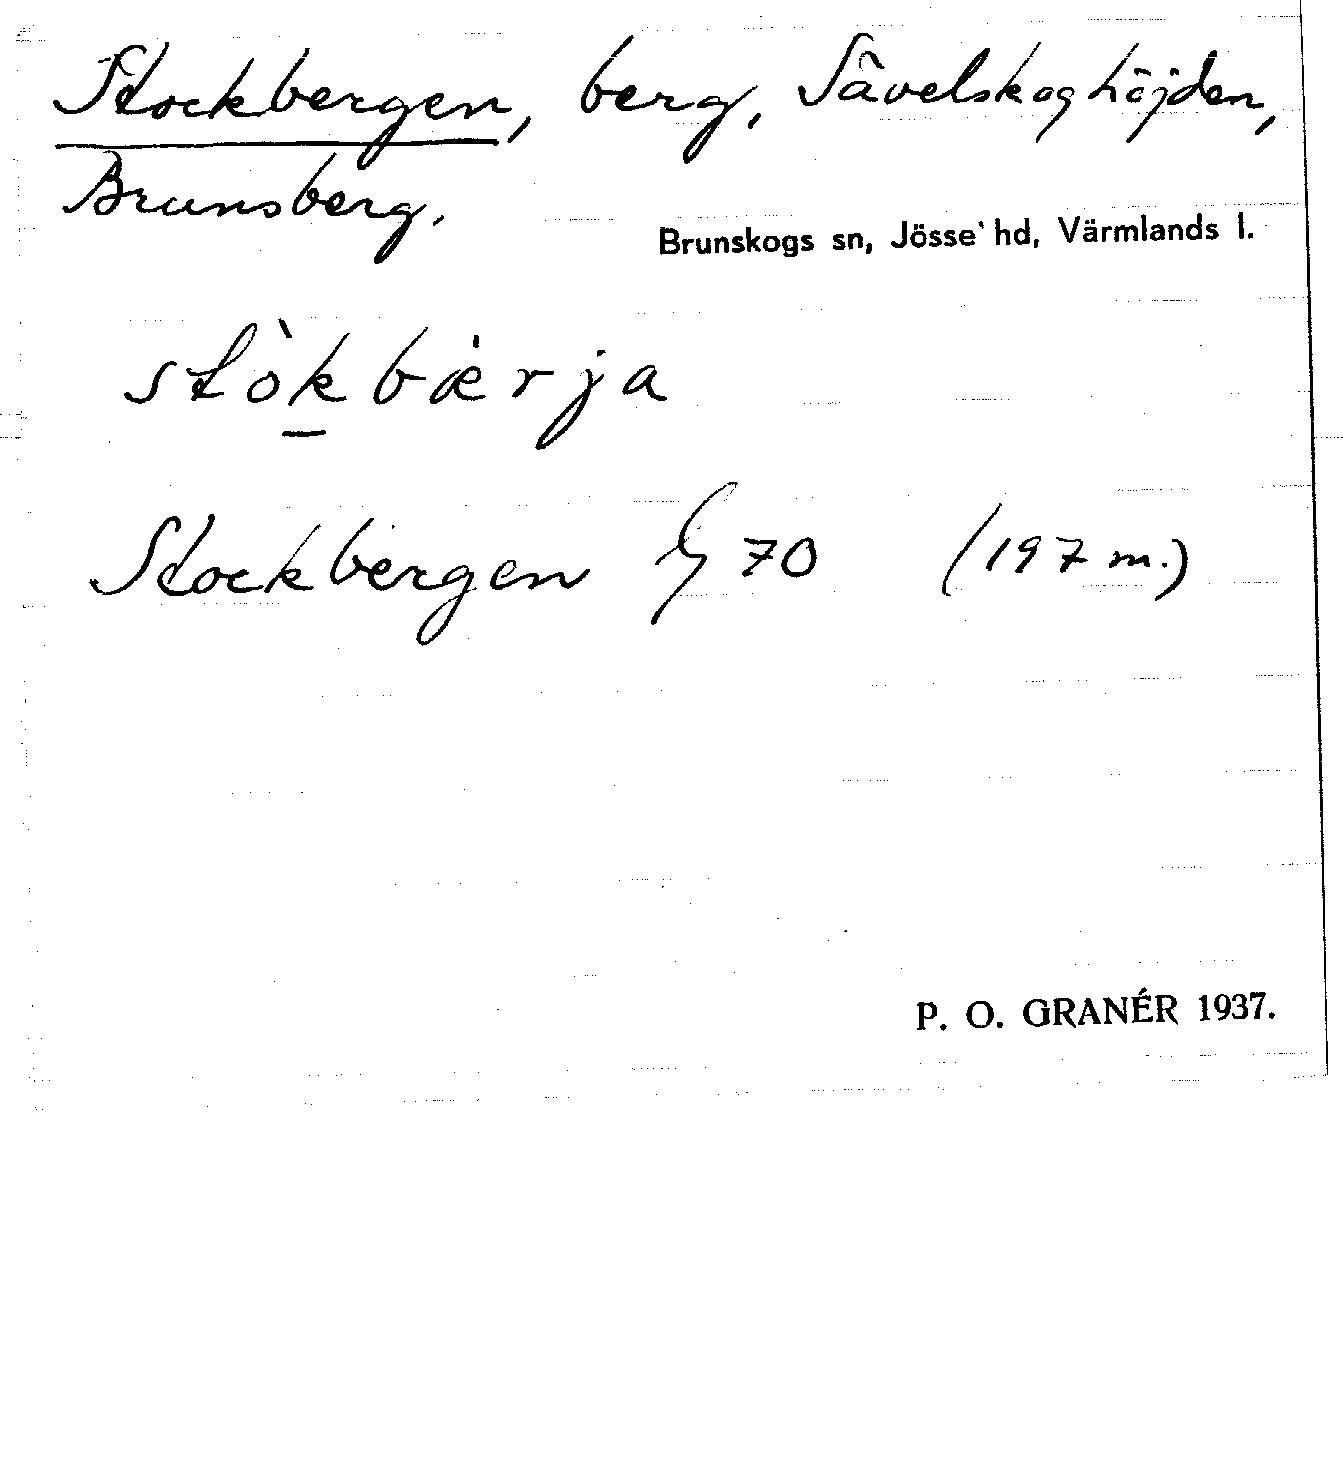 Stockbergen, berg, Sävelskoghöjden,
Brunsberg.
Brunskogs sn, Jösse hd, Värmlands l.
stòkbærja
Stockbergen G 70 (197 m.)
P. O. GRANÉR 1937.